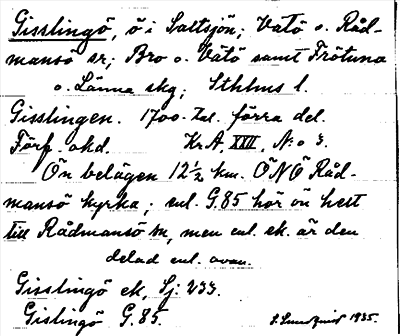 Gisslingö, ö i Saltsjön; Vätö o. Råd-
mansö sr; Bro o. Vätö samt Frötuna
o. Länna skg; Sthlms l.
Gisslingen. 1700-tal. förra del.
Förf. okd. Kr.A, XXII, N:o 3.
Ön belägen 12½ km. ÖNÖ Råd-
mansö kyrka; enl. G.85 hör ön helt
till Rådmansö sn, men enl. ek. är den
delad enl. ovan.
Gisslingö ek, Sj: 233.
Gislingö G.85.
S. Sundqvist 1935.